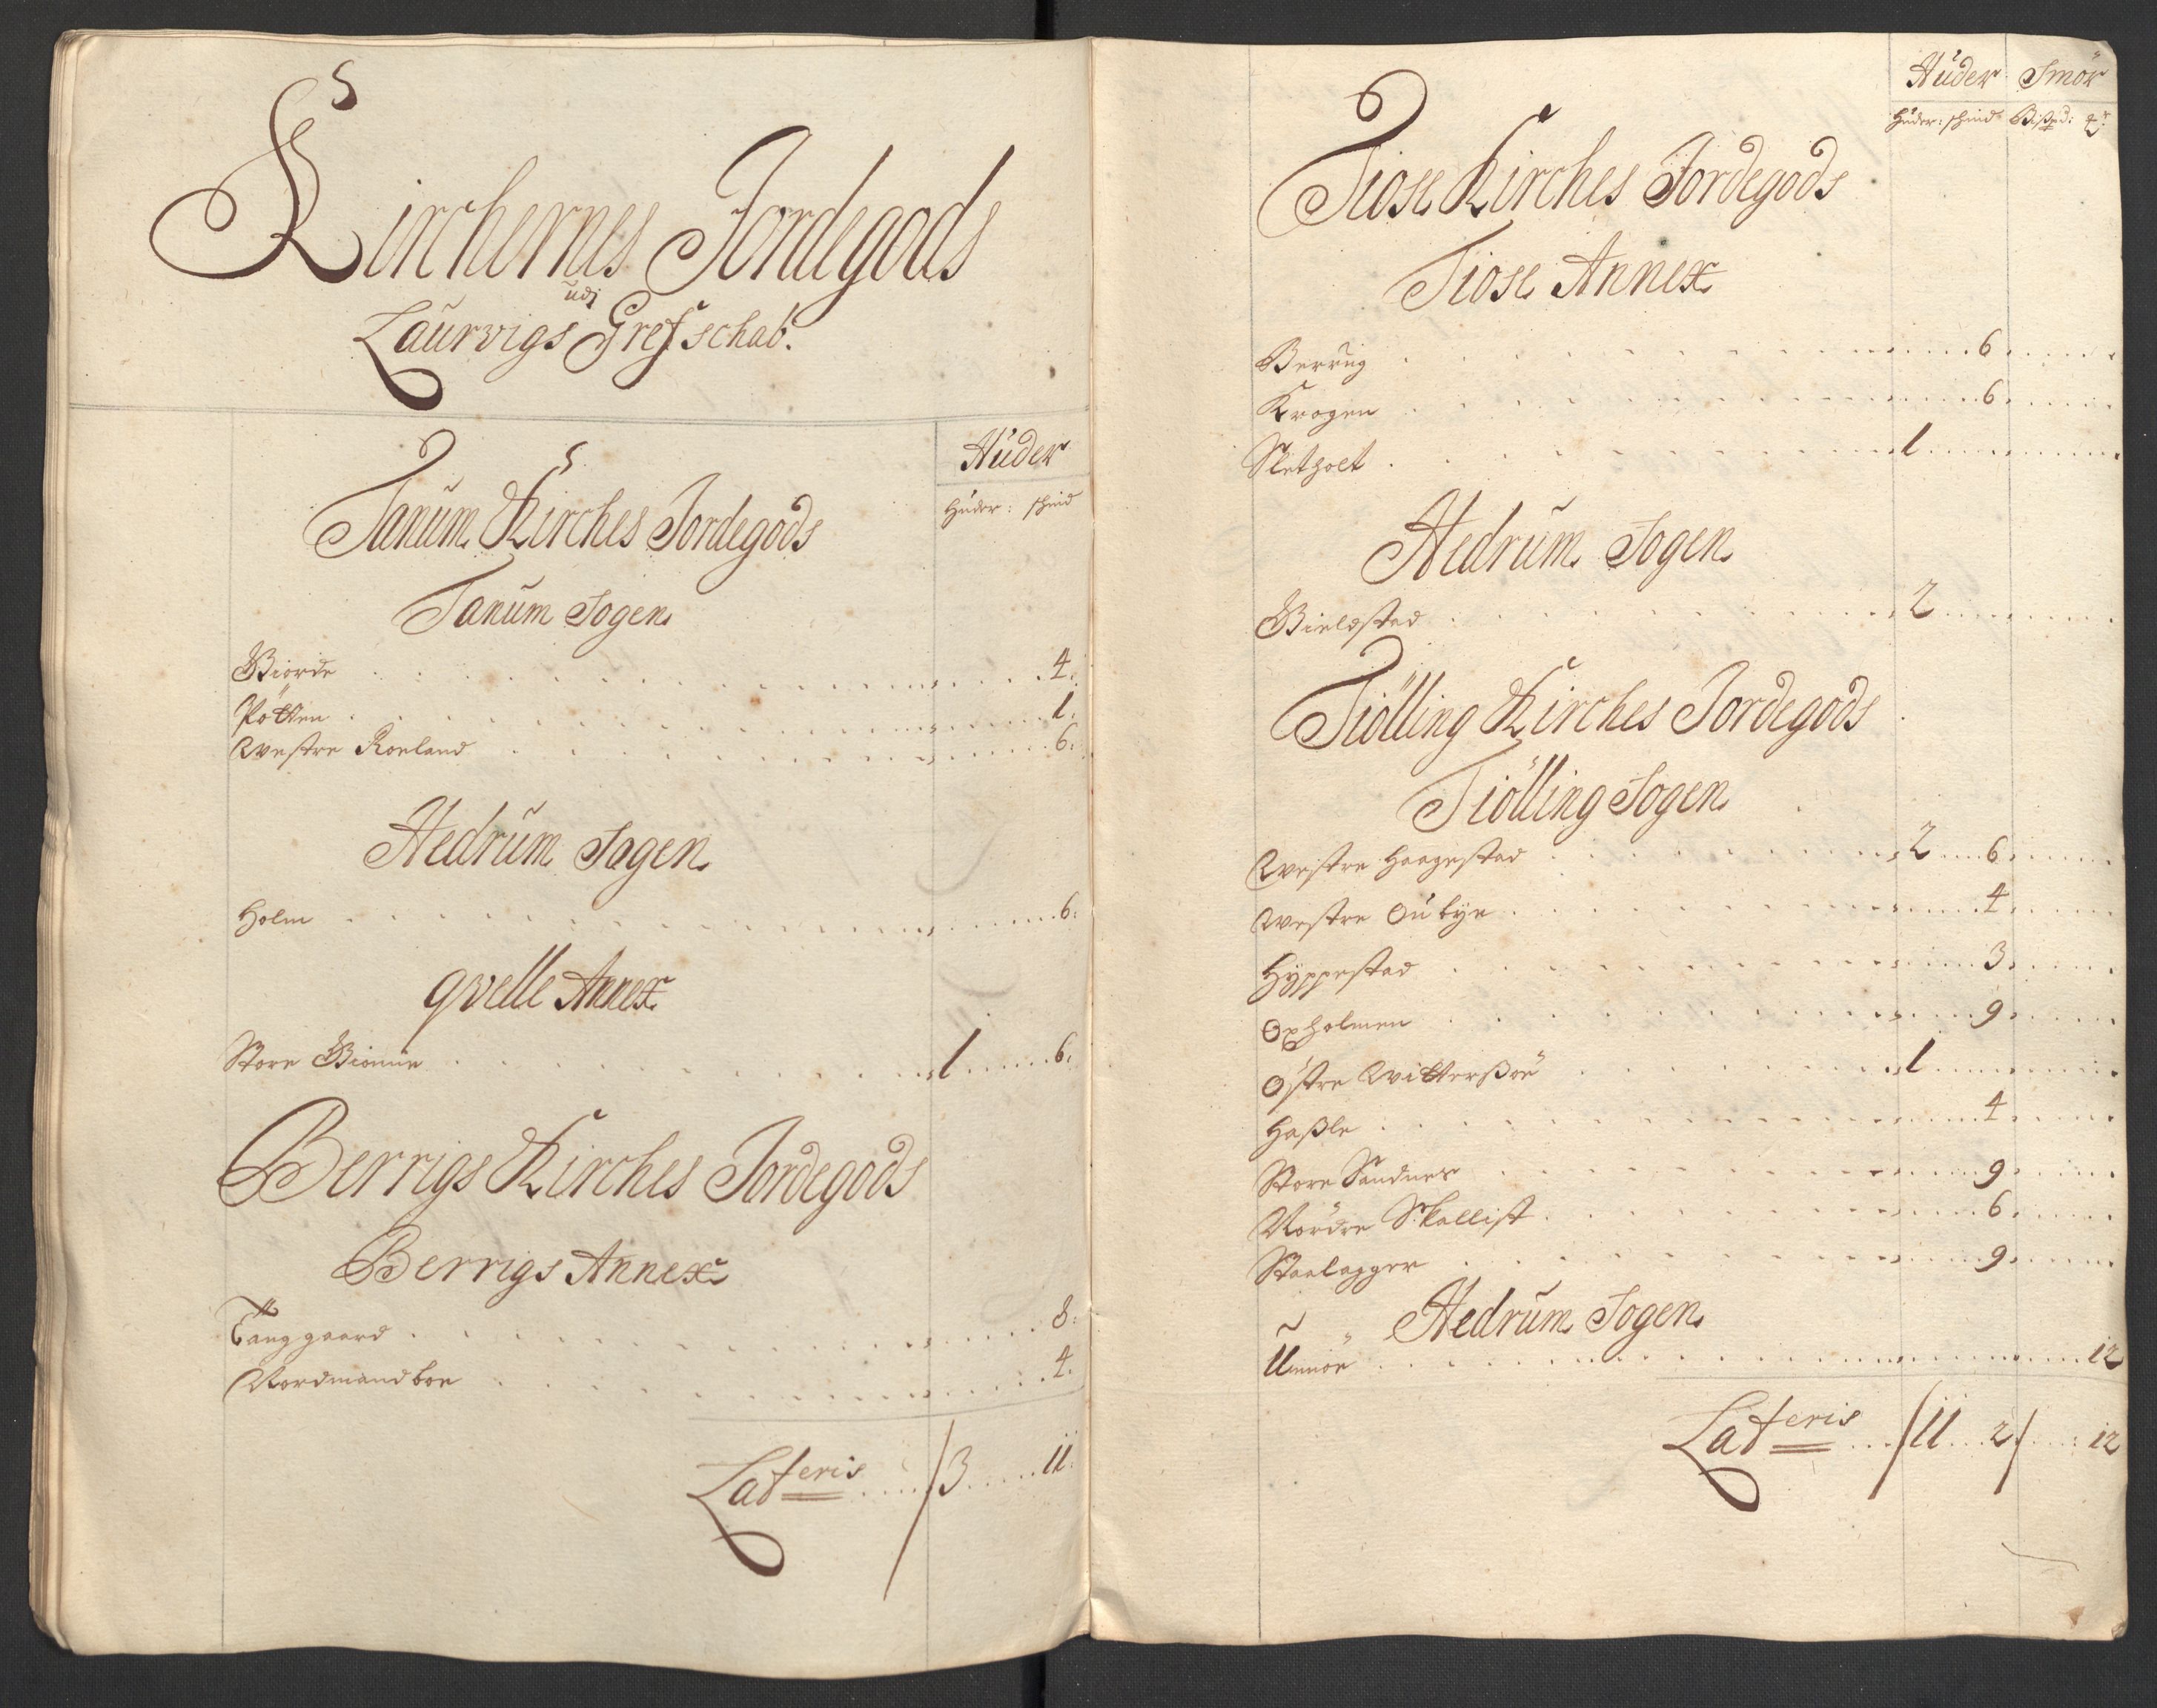 Kirchernes Jordegods
udj
Laurvigs Grefschab.
Huder
Huder: schind
Tanum Kirches Jordegods
Tanum Sogen
Biorde 4:
Pøtten 1:
Westre Roeland 6:
Hedrum Sogen
Holm 6:
Qvelle Annex
Store 1 6:
Berrigs Kirches Jordegods
Berrigs Annex
Tanggaard 8:
Nordmandboe 4:
Lateris 3 11:
Huder Smör
Huder: schind Bißpd:
Tiose Kirches Jordegods
Tiose Annex
Berrug 6
Krogen 6
Sletholt 1
Hedrum Sogen
Bielstad 2
Tiölling Kirches Jordegods
Tiölling Sogen
Westre Haagestad 2 6
Westre Oubye 4
Hÿppestad 3
Oxholmen 9
Østre Witterßöe 1
Haßle 4
Store Sandnes 9
Nordre Skallist 6
Staalagger 9
Hedrum Sogen
Unnöe 12
Lateris 11 2 12